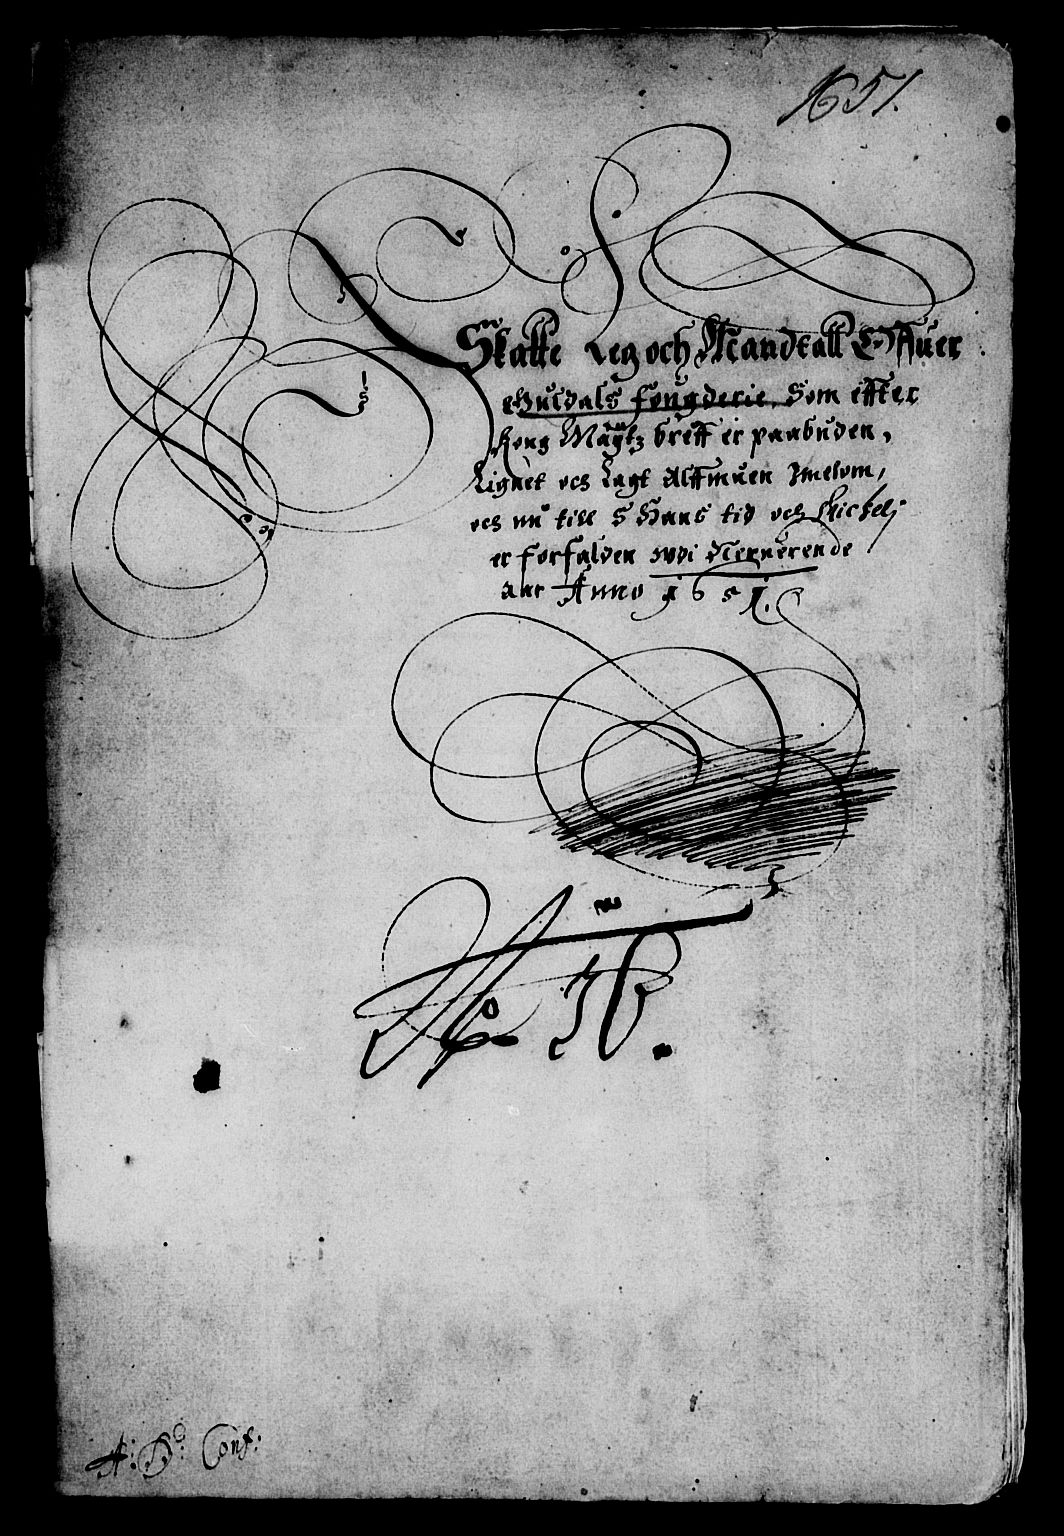 1651.
Skatte Leg och Mandtall Offuer
Guldals fougderie, Som effter
Kong Maÿtz breff er paabuden,
Lignet och Lagt Alffmuen Imelom,
och nu till S Hans tid och Skickelj
er forfalden udi Neruerende
aar Anno 1651.
No
A: D: Conf: